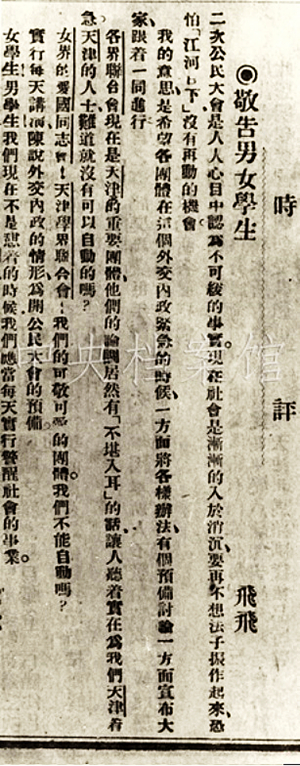 時評
◉敬告男女學生 飛飛
二次公民大會是人人心目中認為不可緩的事實、現在社會是漸漸的入於消沉、要再不想法子振作起來、恐
怕「江河日下」沒有再動的機會。
我的意思、是希望各團體在這個外交內政緊急的時候、一方面將各樣辦法、有個預備討論一方面宣布大
家、跟着一同進行
各界聯合會現在是天津的重要團體他們的論調居然有「不堪入耳」的話讓人聽着實在為我們天津着
急、天津的人士難道就沒有可以自動的嗎?
女界的愛國同志會!天津學界聯合會!我們的可敬可愛的團體、我們不能自動嗎?
實行每天講演、陳說外交內政的情形、為開公民大會的預備。
女學生男學生我們現在不是憇着的時候、我們應當每天實行警醒社會的事業。
中央档案馆